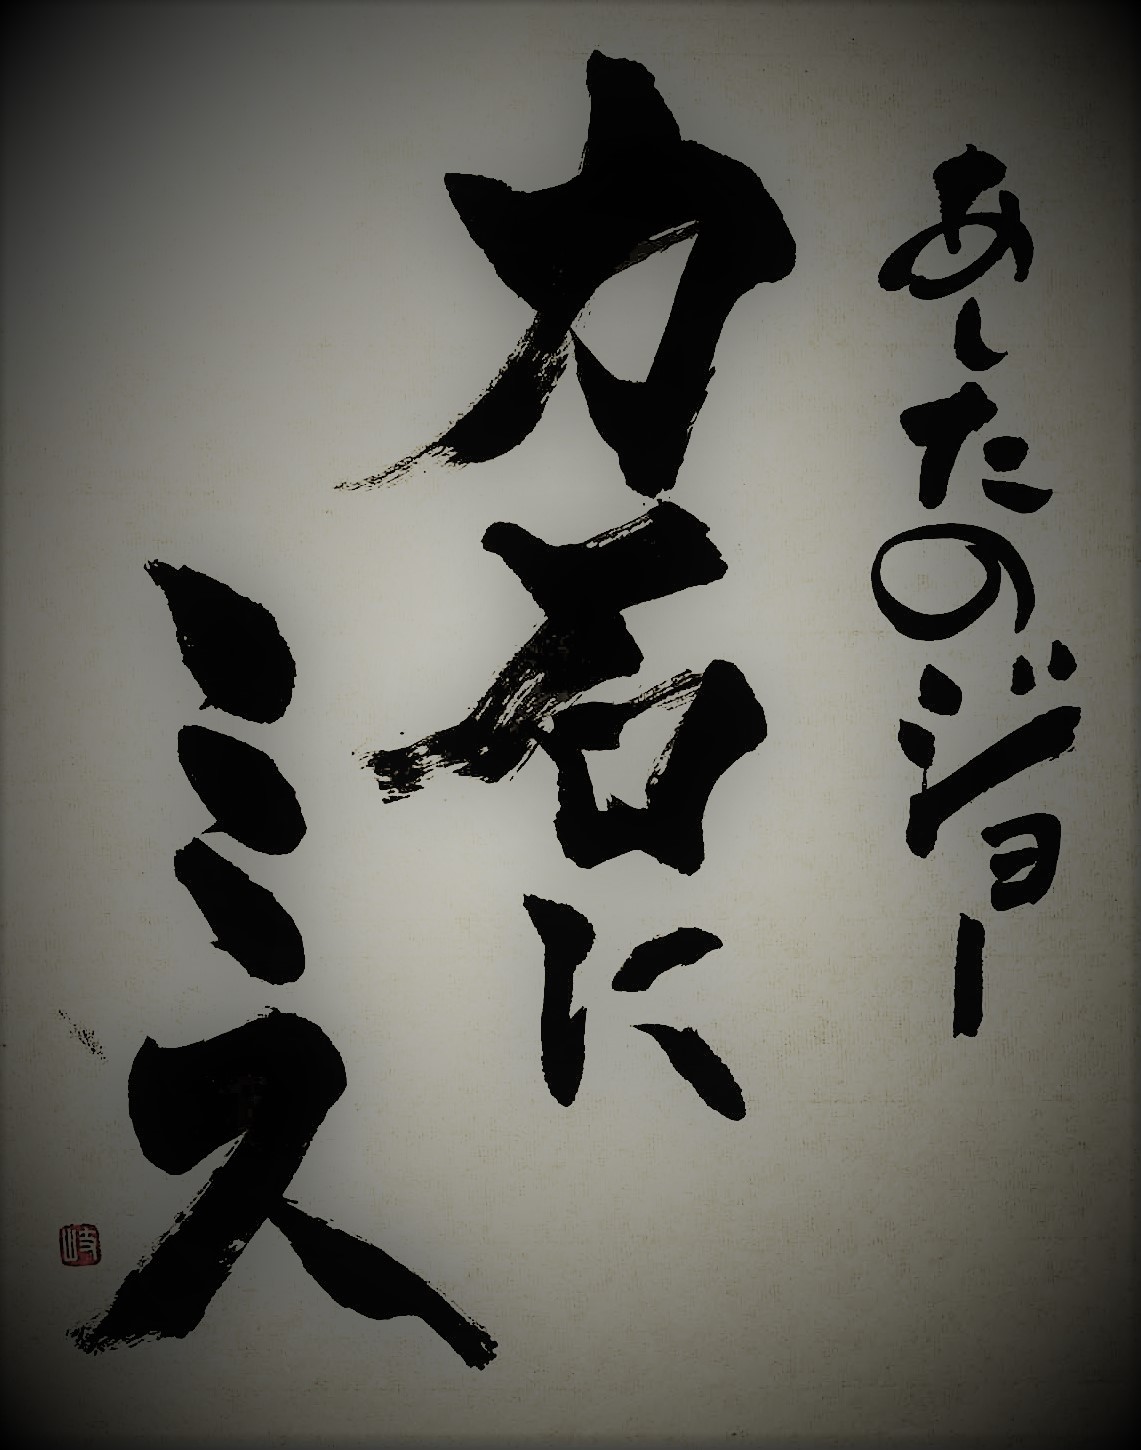 あしたのジョー
力石に
ミス
岐